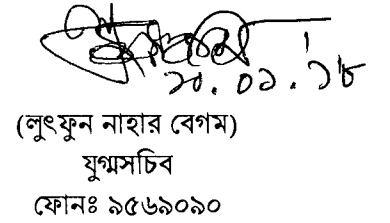 ২০.০১.১৮
(লুৎফুন নাহার বেগম)
যুগ্মসচিব
ফোনঃ ৯৫৬৯০৯০